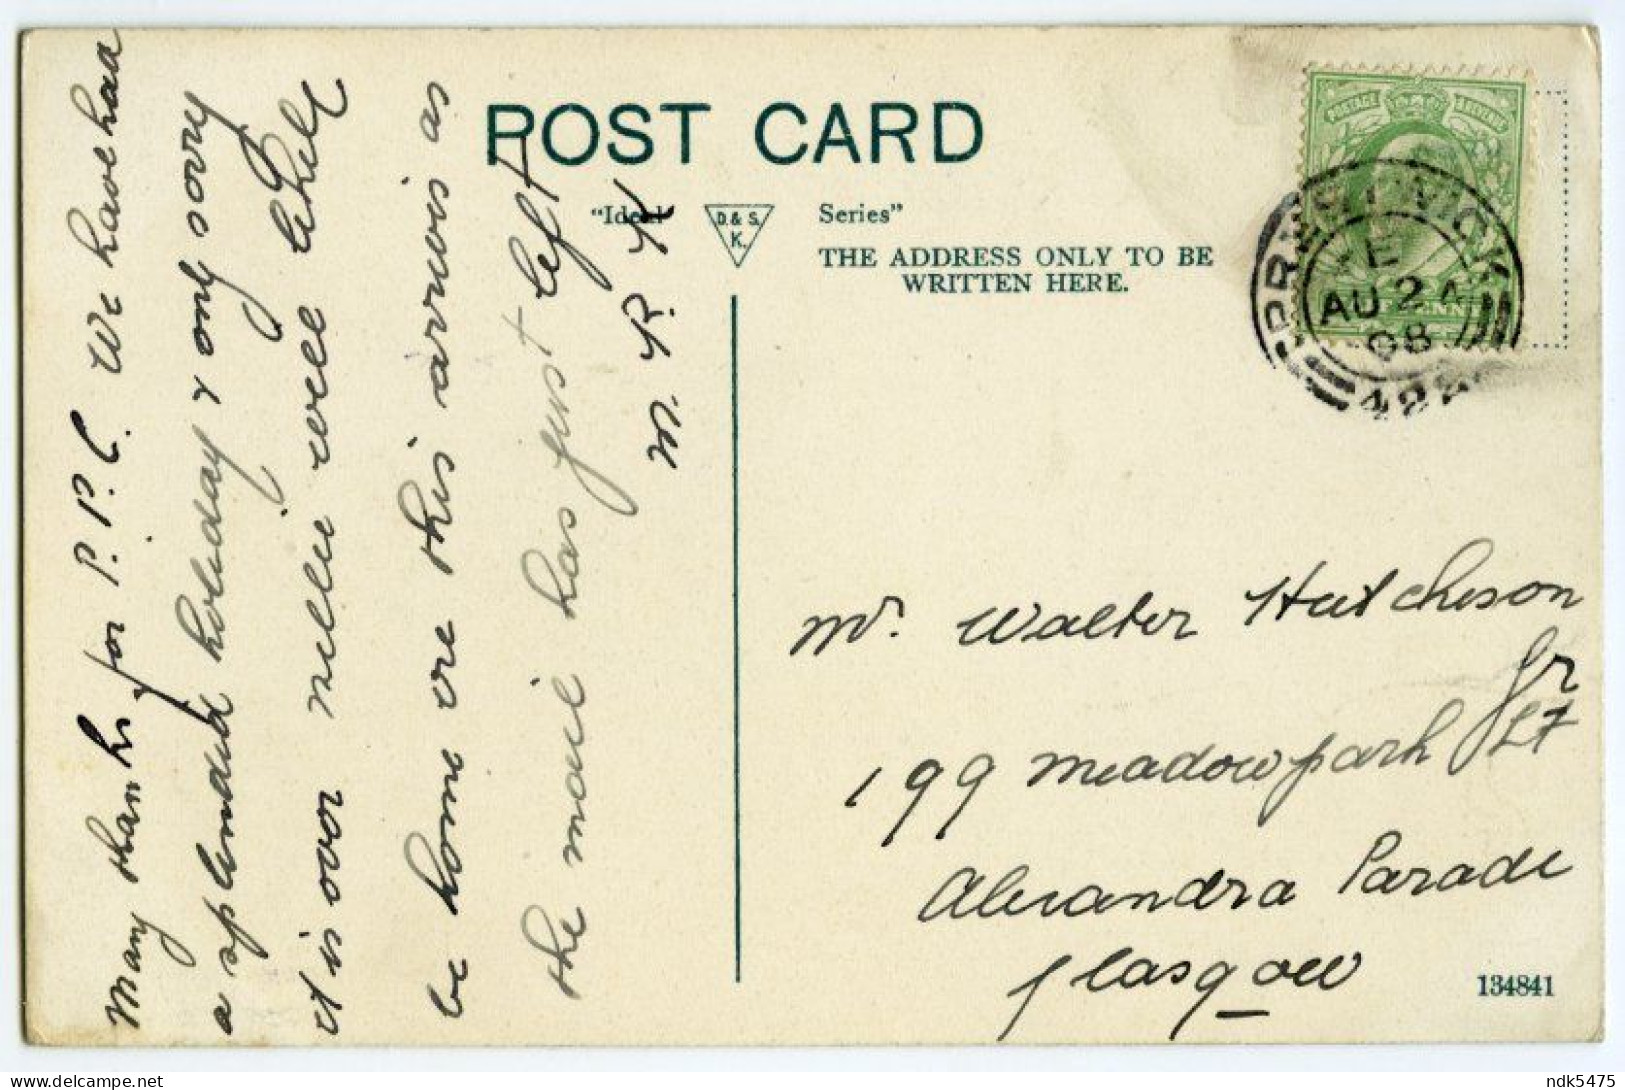 Many thanks for P.P.C. We have had
a splendid holiday & only sorry
it is over nellie will likely
be home ore this arrives as
the mail has just left
M. P. K
POST CARD
"Ideal Series"
D. & S. K.
THE ADDRESS ONLY TO BE
WRITTEN HERE.
POSTAGE REVENUE
PRESTWICK
E
AU 24
08
422
Mr. Walter Hutcheson
Jr
199 meadowpark St
Alexandra Parade
Glasgow
134841
delcampe.net
ndk5475